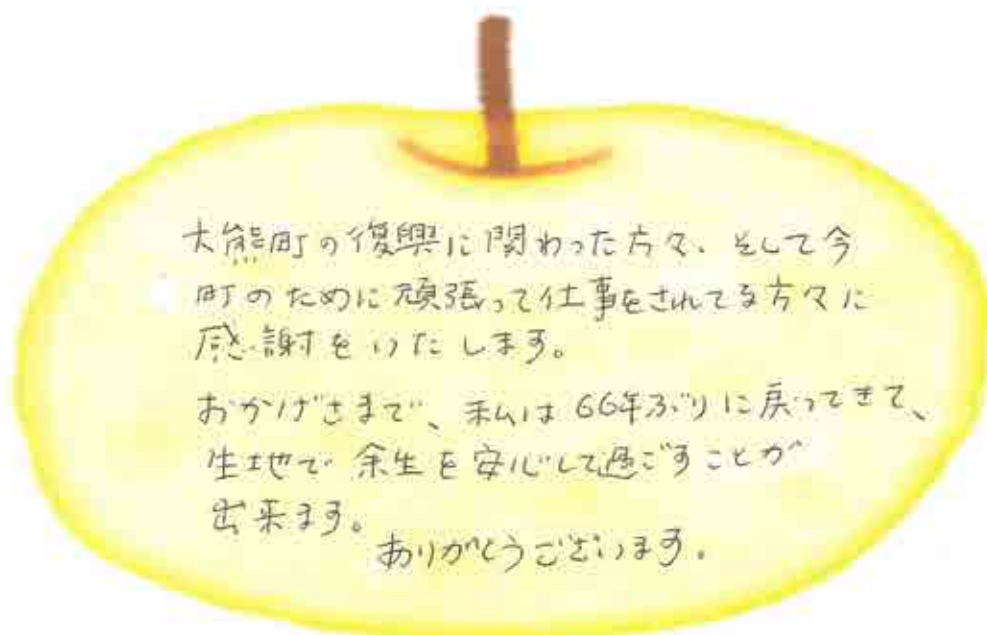 大熊町の復興に関わった方々、そして今
町のために頑張って仕事をされてる方々に
感謝をいたします。
おかげさまで、私は66年ぶりに戻ってきて、
生地で余生を安心して過ごすことが
出来ます。
ありがとうございます。